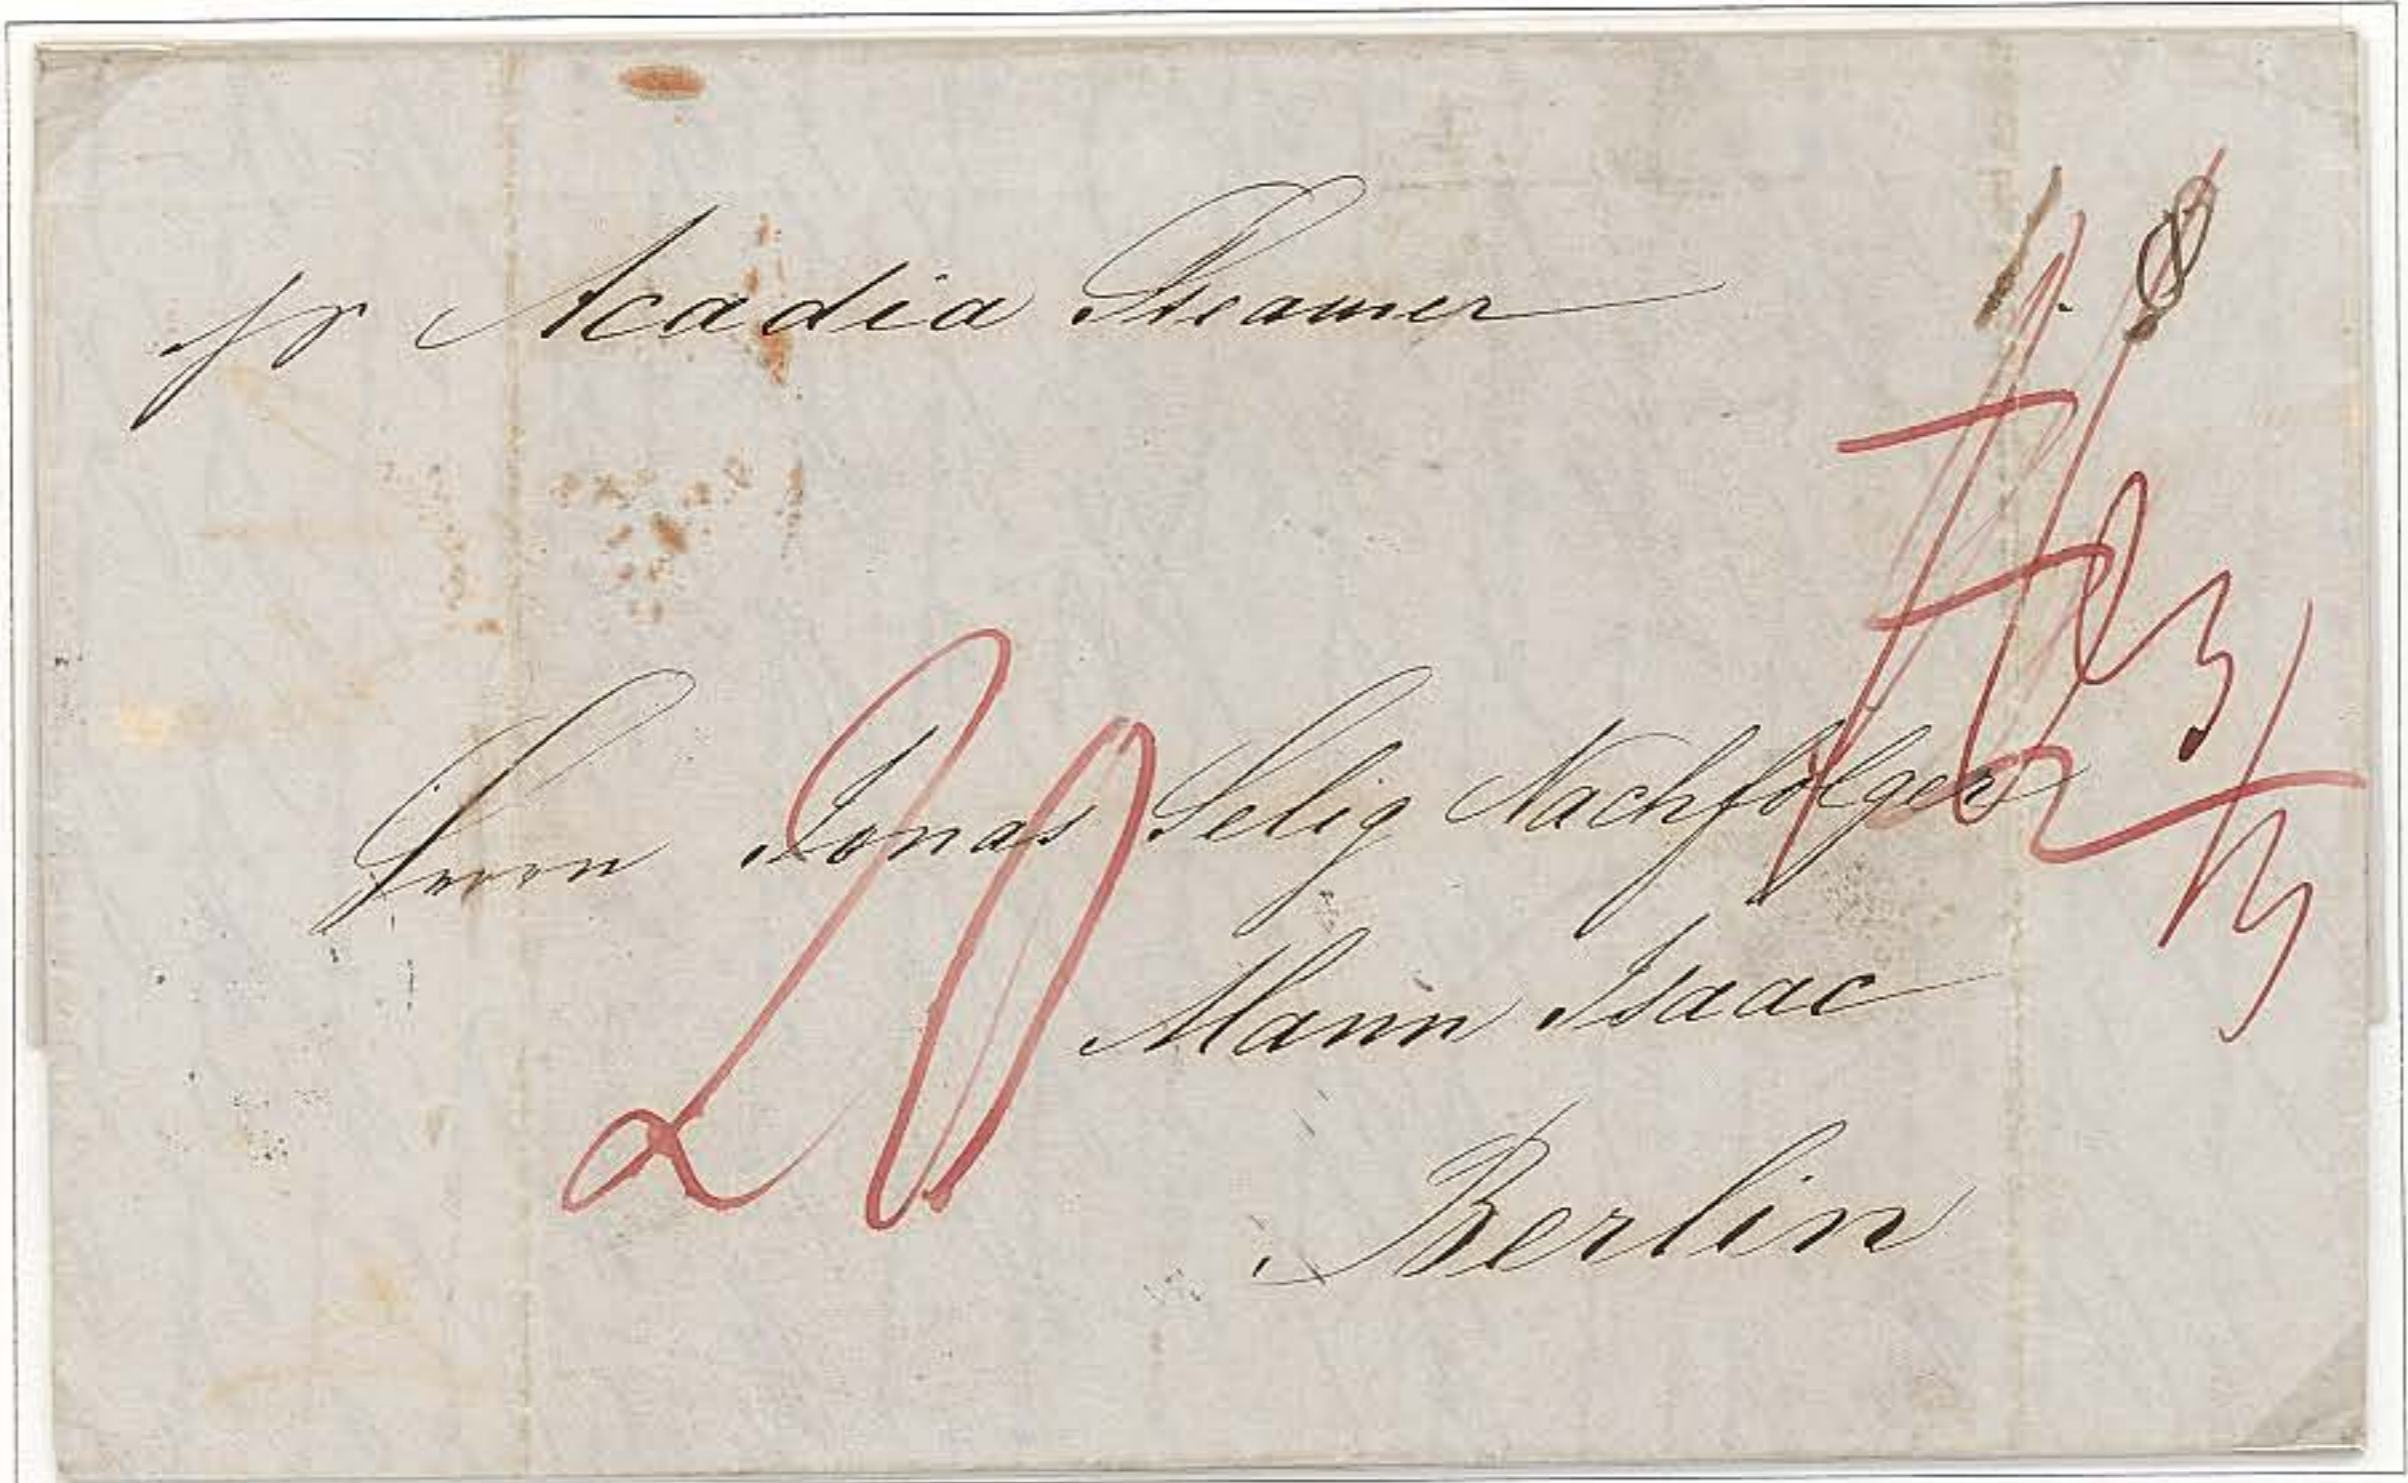 pr Acadia Steamer
1. 8
Herrn Jonas Selig Nachfolger
20
Mann Isaac
Berlin